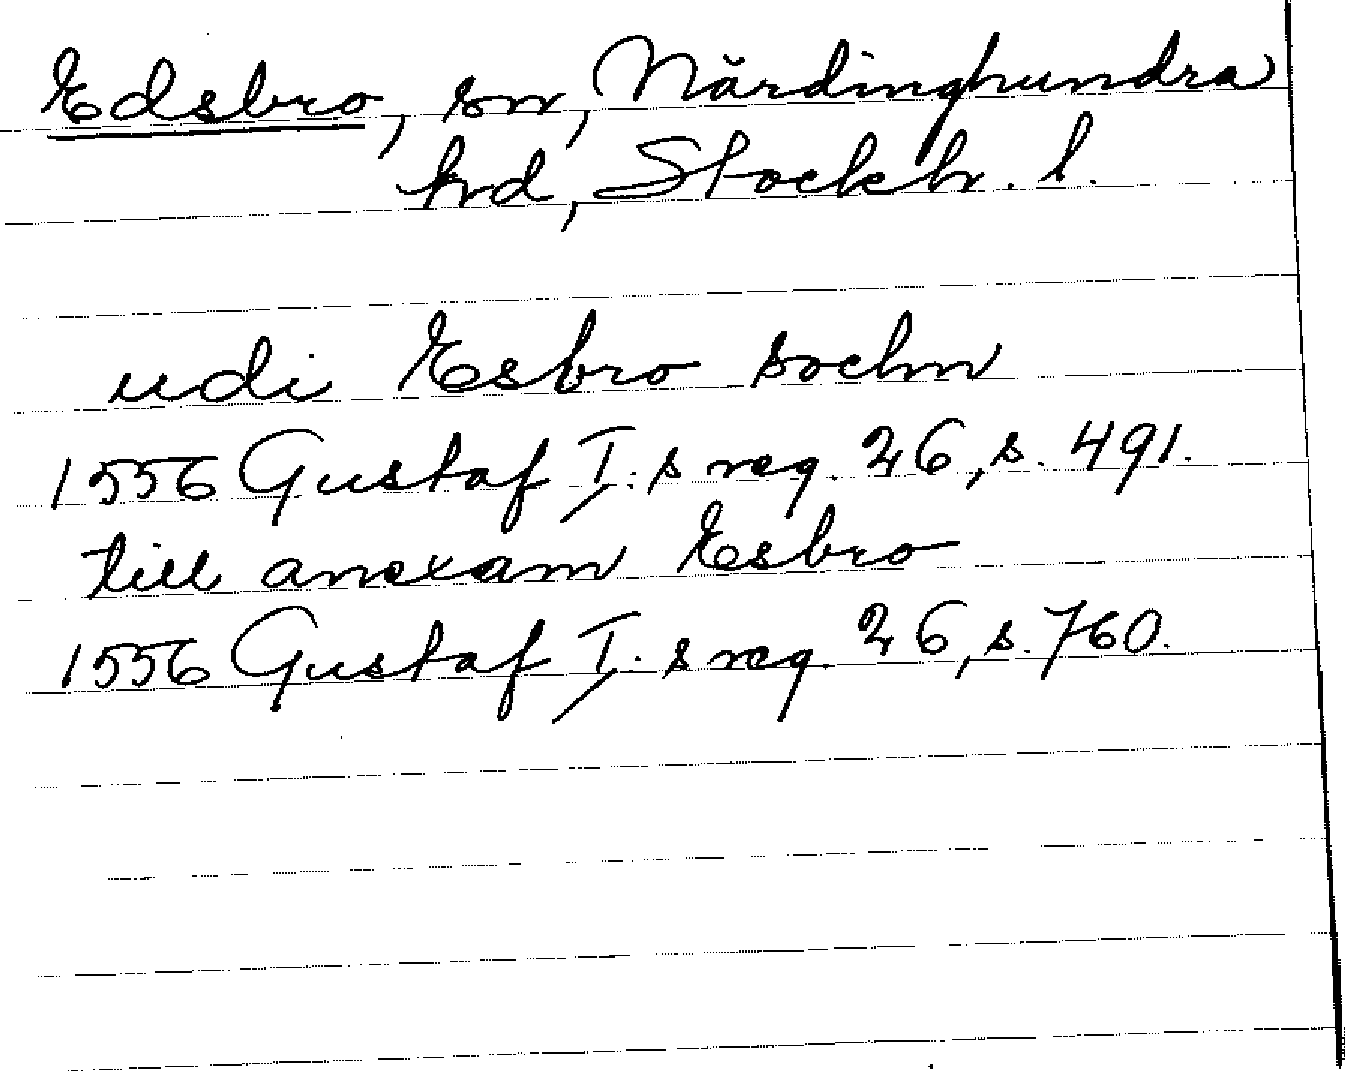 Edsbro, sn, Närdinghundra
hrd, Stockh. l.
udi Esbro sochn
1556 Gustaf I:s reg. 26, s. 491.
till anexam Esbro
1556 Gustaf I:s reg. 26, s. 760.